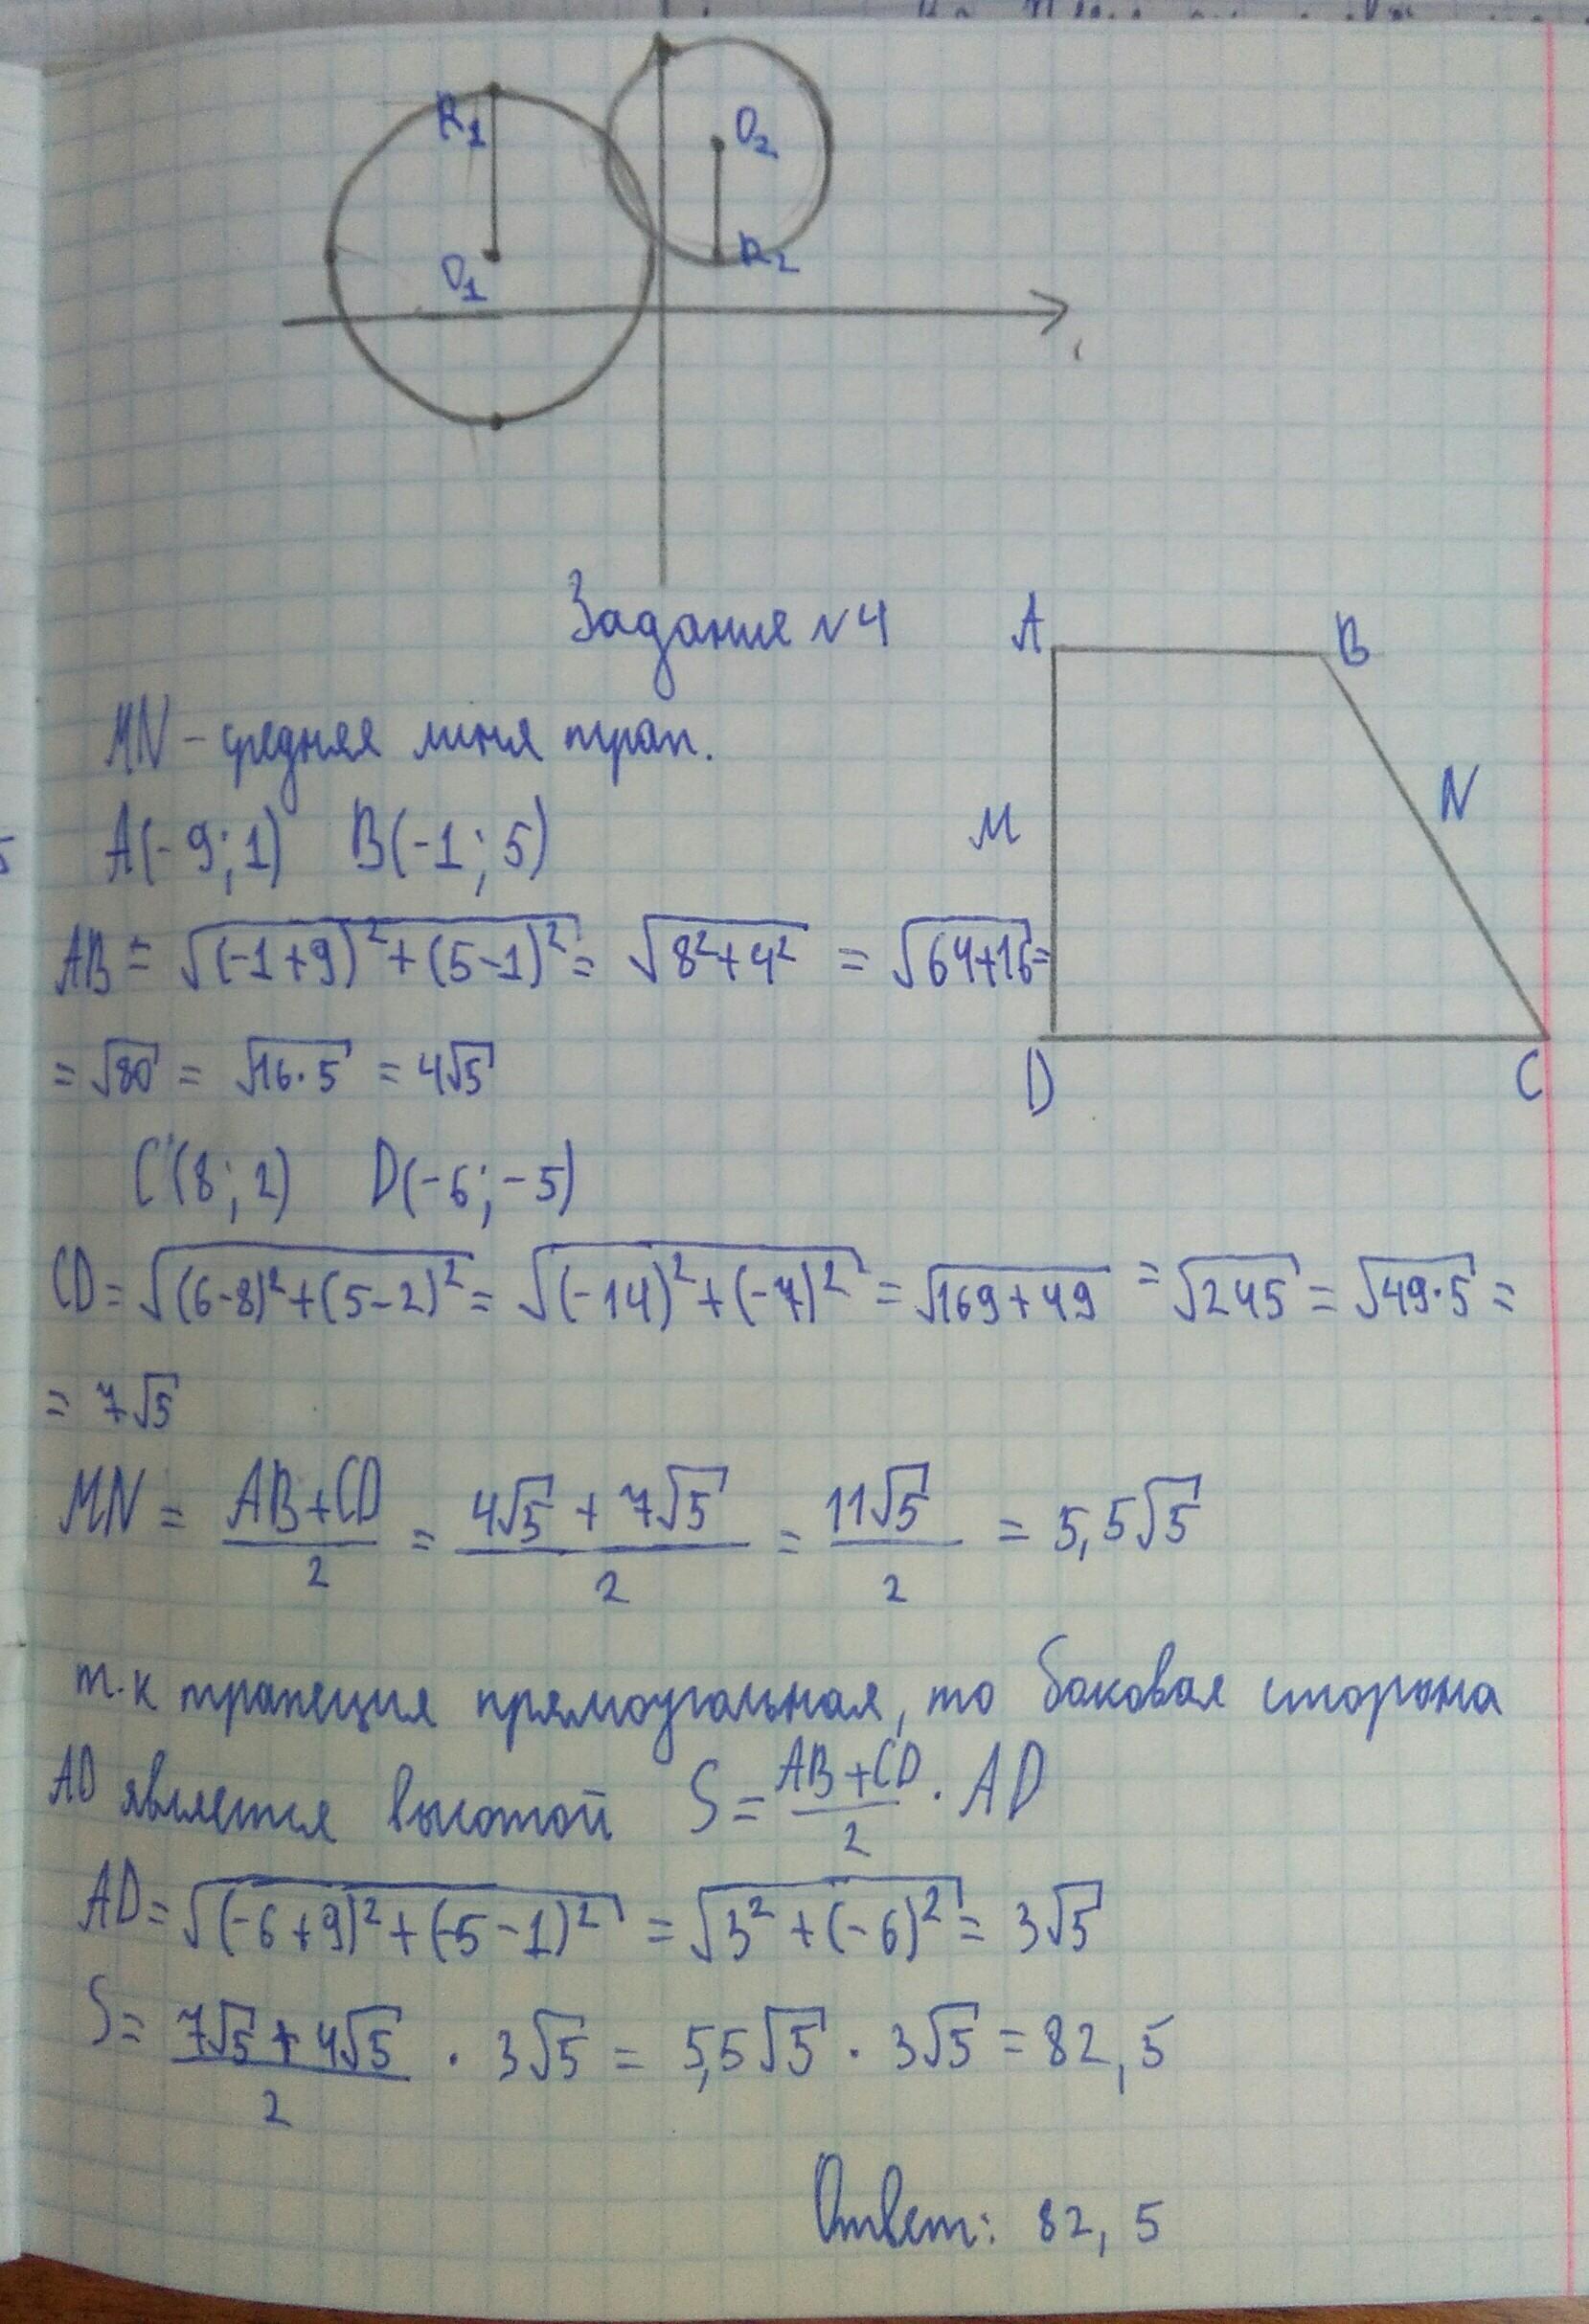 R₁
O₂
O₁
R₂
Задание №4
A
B
MN - средняя линия трап.
A(-9; 1) B(-1; 5)
M
N
AB = √((-1+9)²+(5-1)²) = √(8²+4²) = √(64+16) =
= √80 = √(16·5) = 4√5
D
C
C(8; 2) D(-6; -5)
CD = √((6-8)²+(5-2)²) = √((-14)²+(-7)²) = √(169+49) = √245 = √(49·5) =
= 7√5
MN = (AB+CD)/2 = (4√5 + 7√5)/2 = 11√5/2 = 5,5√5
т.к трапеция прямоугольная, то боковая сторона
AD является высотой S = (AB+CD)/2 · AD
AD = √((-6+9)²+(-5-1)²) = √(3²+(-6)²) = 3√5
S = (7√5+4√5)/2 · 3√5 = 5,5√5 · 3√5 = 82,5
Ответ: 82,5